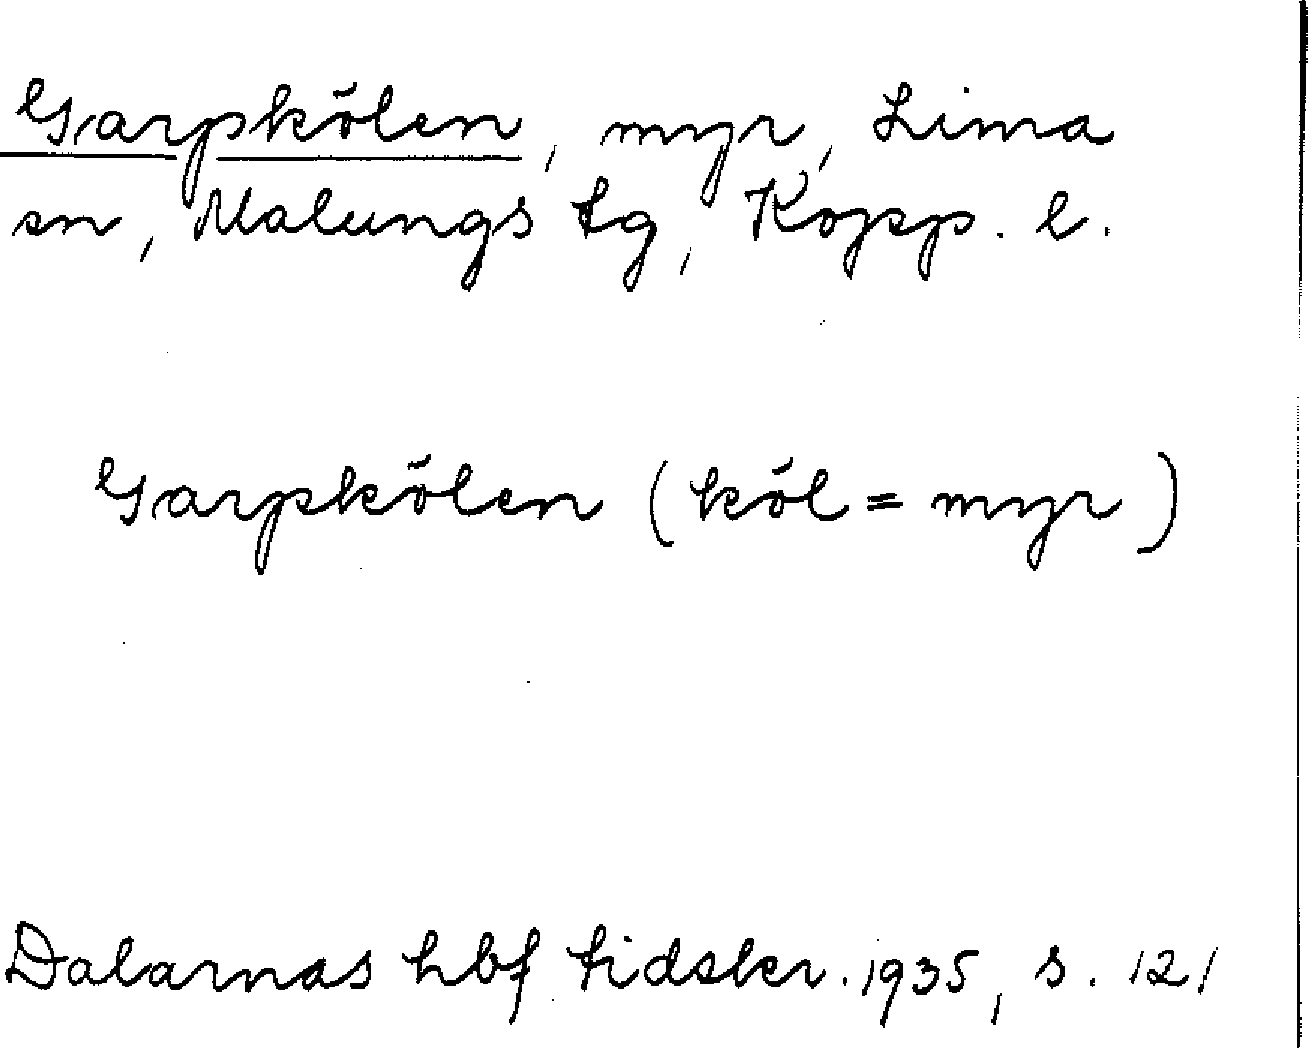 Garpkölen, myr, Lima
sn, Malungs tg, Kopp. l.
Garpkölen (köl = myr)
Dalarnas hbf tidskr. 1935, s. 121